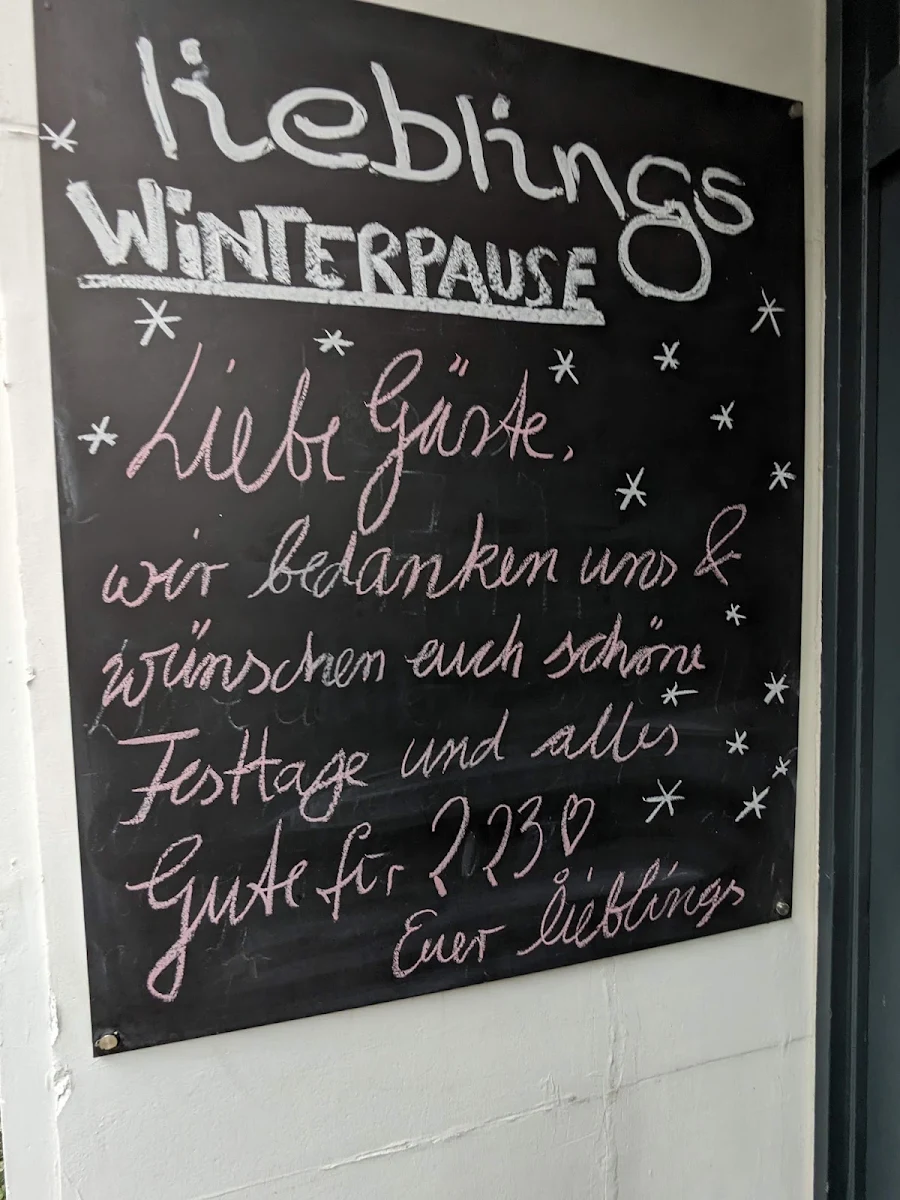 lieblings
WiNTERPAUSE
Liebe Gäste,
wir bedanken uns &
wünschen euch schöne
Festtage und alles
Gute für 2023♡
Euer lieblings